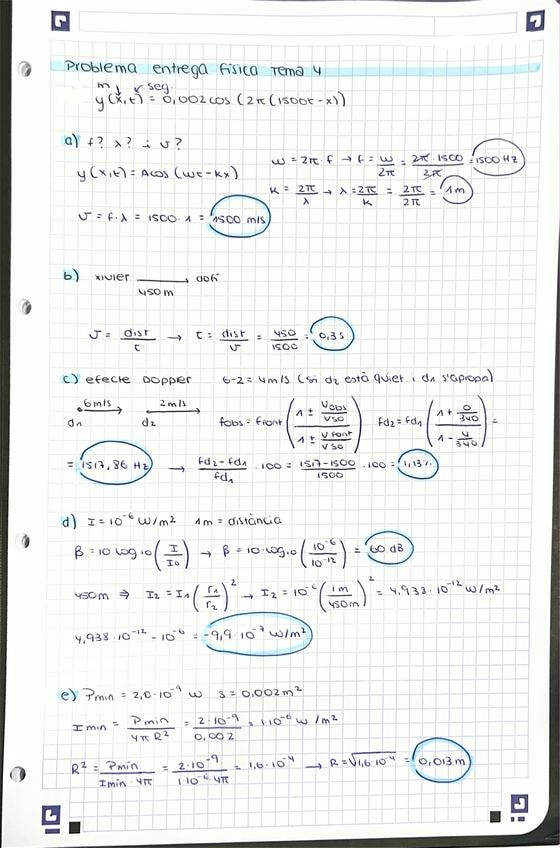 Problema entrega física Tema 4
m seg
y(x,t) = 0,002cos (2π(1500t-x))
a) f? λ? i v?
ω = 2π·f → f = ω/2π = 2π·1500/2π = 1500 Hz
y(x,t) = Acos (ωt - kx)
k = 2π/λ → λ = 2π/k = 2π/2π = 1m
v = f·λ = 1500·1 = 1500 m/s
b) xiulet → dofí
450m
v = dist/t → t = dist/v = 450/1500 = 0,3s
c) efecte Doppler 6-2 = 4m/s (si d2 està quiet i d1 s'apropa)
6m/s 2m/s
d1 d2
fobs = ffont (1 ± Vobs/Vso / 1 ± Vfont/Vso) fd2 = fd1 (1 + 0/340 / 1 - 4/340) =
= 1517,86 Hz → fd2-fd1/fd1 ·100 = 1517-1500/1500 ·100 = 1,13%
d) I = 10⁻⁶ W/m² 1m = distància
β = 10 log10 (I/I0) → β = 10·log10 (10⁻⁶/10⁻¹²) = 60 dB
450m ⇒ I2 = I1 (r1/r2)² → I2 = 10⁻⁶ (1m/450m)² = 4,938·10⁻¹² W/m²
4,938·10⁻¹² - 10⁻⁶ = -9,9·10⁻⁷ W/m²
e) Pmin = 2,0·10⁻⁹ W S = 0,002m²
Imin = Pmin/4πR² = 2·10⁻⁹/0,002 = 1·10⁻⁶ W/m²
R² = Pmin/Imin·4π = 2·10⁻⁹/1·10⁻⁶·4π = 1,6·10⁻⁴ → R = √1,6·10⁻⁴ = 0,013m